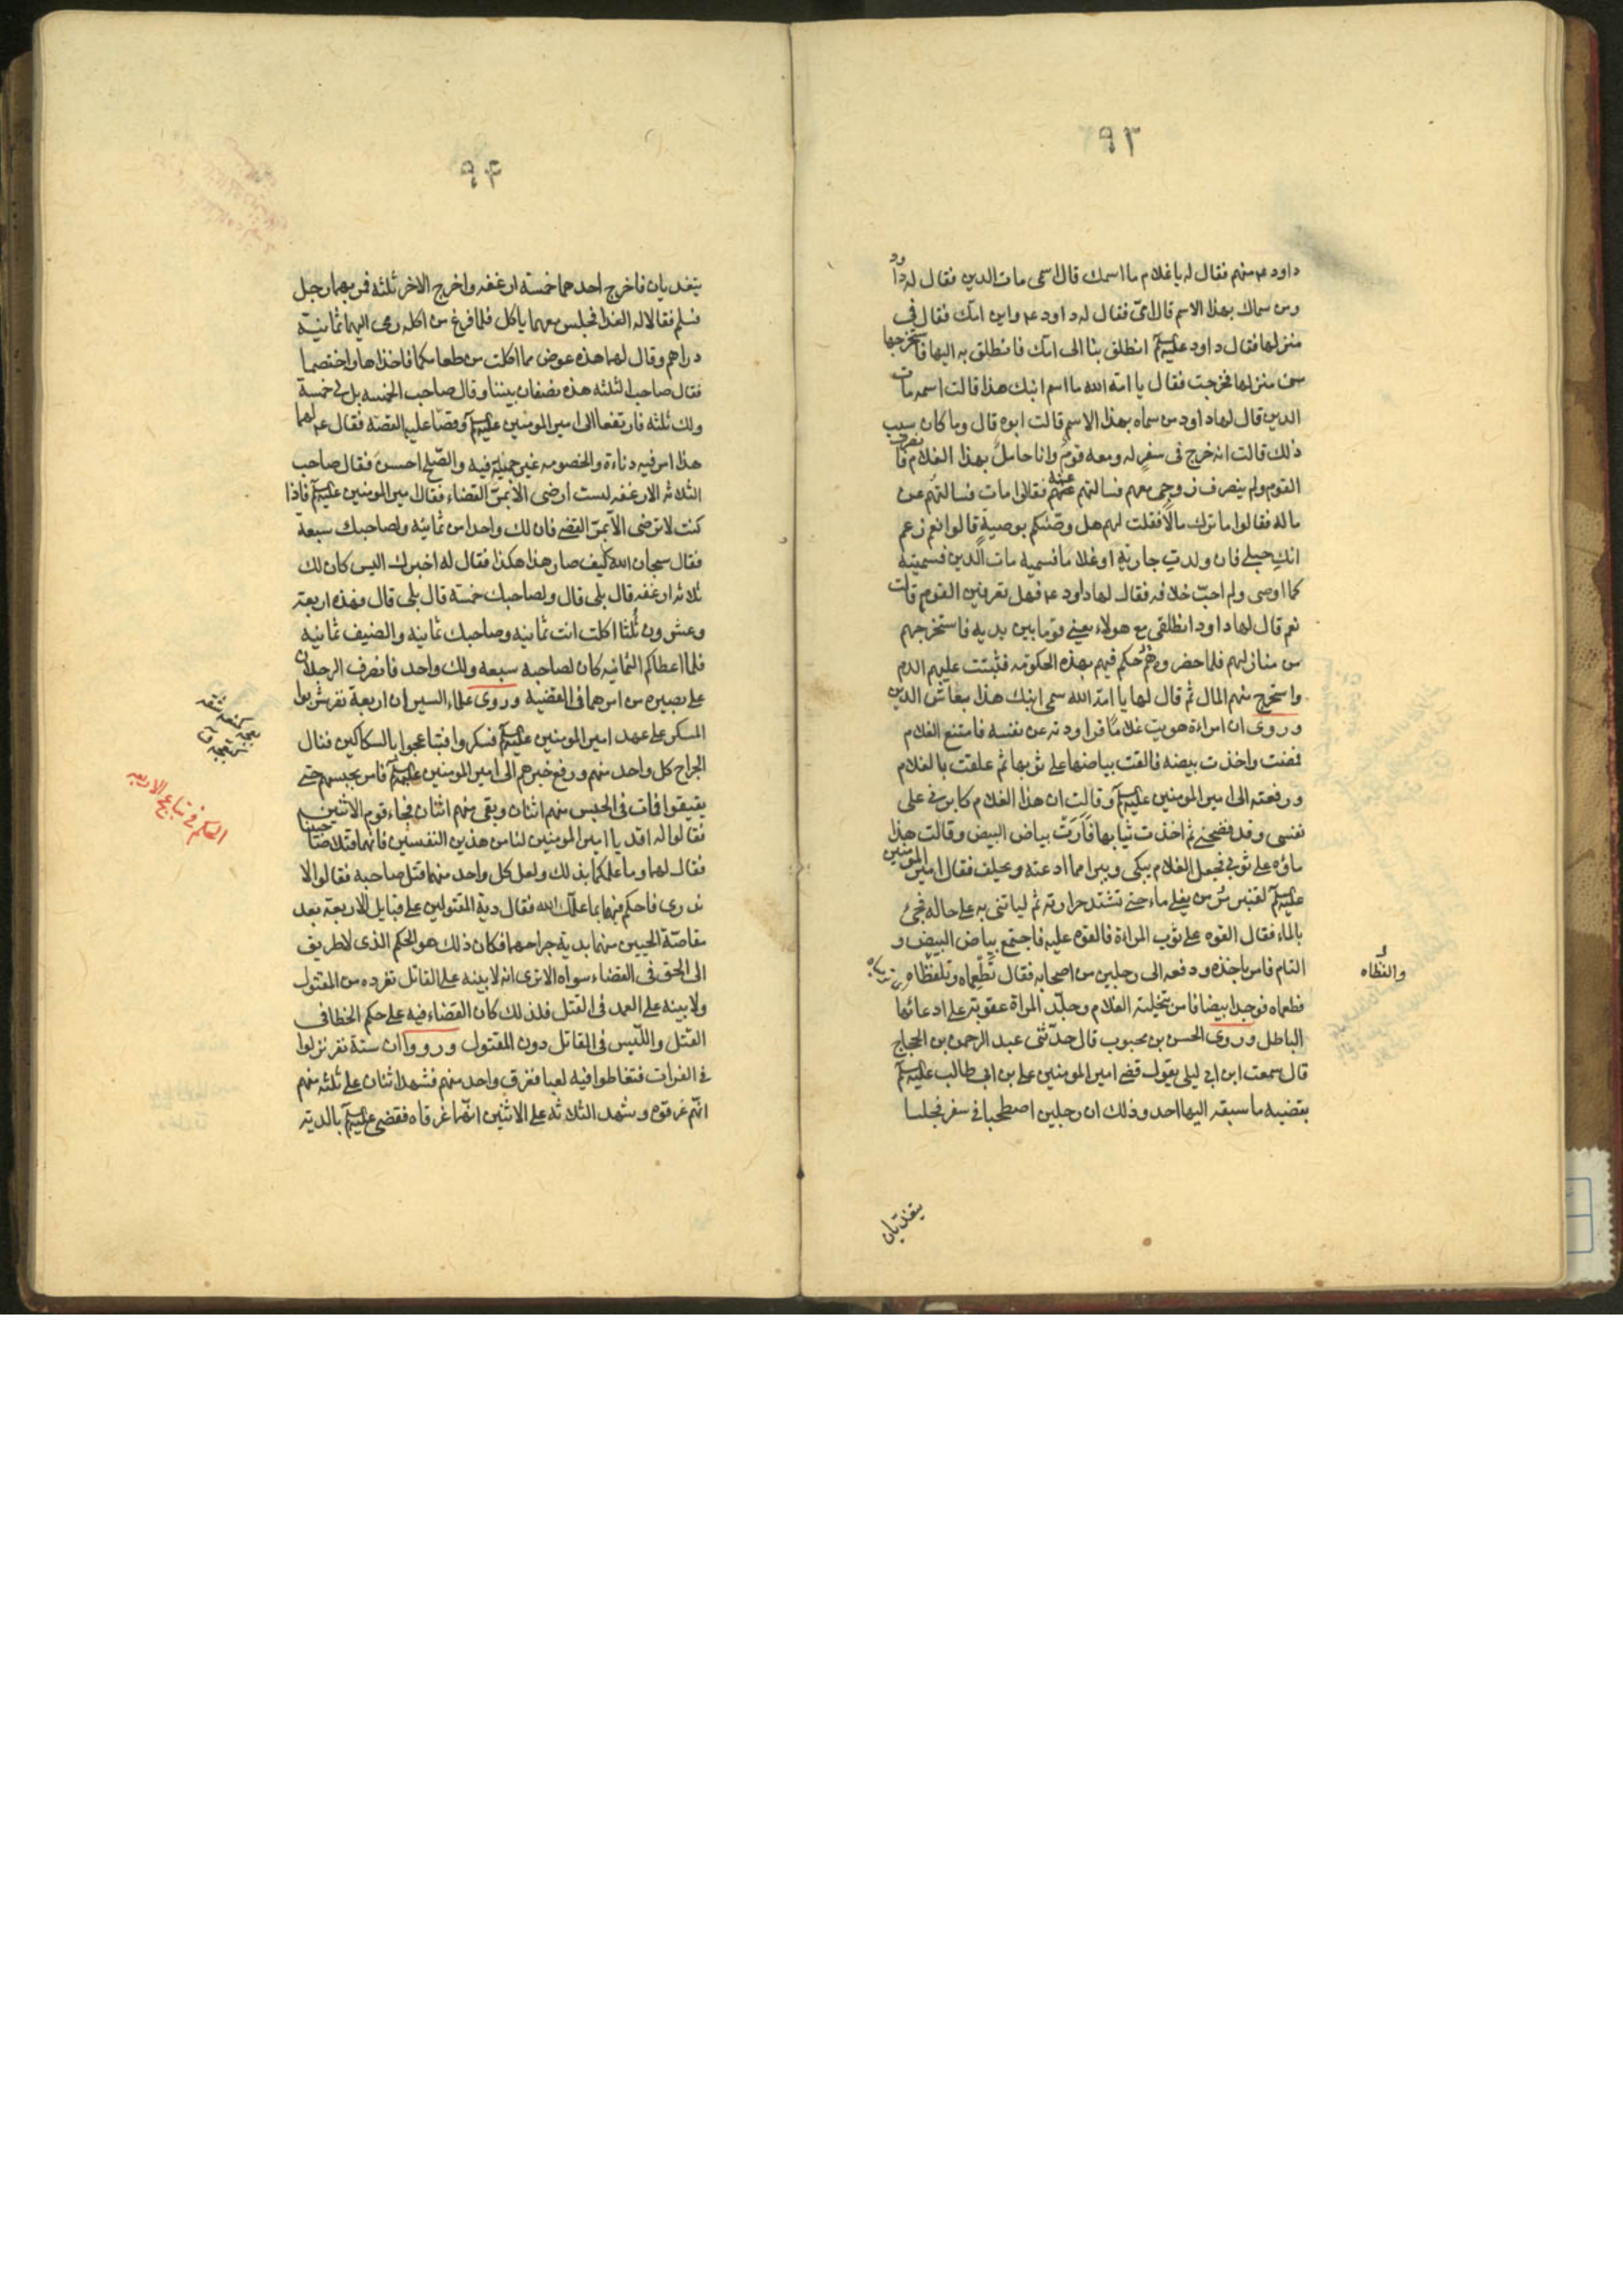 ٩٣
داود ع منهم فقال له يا غلام ما اسمك قال اسمى مات الدين فقال له داود
ومن سماك بهذا الاسم قال امى فقال له داود ع واين امك فقال فى
منزلها فقال داود عليه السلم انطلق بنا الى امك فانطلق به اليها فاستخرجها
من منزلها فخرجت فقال يا امة الله ما اسم ابنك هذا قالت اسمه مات
الدين قال لها داود من سماه بهذا الاسم قالت ابوه قال وما كان سبب
ذلك قالت انه خرج فى سفر له ومعه قوم وانا حامل بهذا الغلام فانصرف
القوم ولم ينصرف زوجى معهم فسالتهم عنه فقالوا مات فسالتهم عن
ماله فقالوا ما ترك مالا فقلت لهم هل وصّيكم بوصية قالوا نعم زعم
انك حبلى فان ولدت جارية او غلاما فسميه مات الدين فسميته
كما اوصى ولم احبّ خلافه فقال لها داود ع فهل تعرفين القوم قالت
نعم قال لها داود انطلقى مع هولاء يعنى قوما بين يديه فاستخرجهم
من منازلهم فلما حضروه حكم فيهم بهذه الحكومة فثبتت عليهم الدم
واستخرج منهم المال ثم قال لها يا امة الله سمى ابنك هذا بعاش الدين
وروى ان امراءة هويت غلاما فراودته عن نفسه فامتنع الغلام
فمضت واخذت بيضه فالقت بياضها على ثوبها ثم علقت بالغلام
ورفعته الى امير المومنين عليه السلم وقالت ان هذا الغلام كابرنى على
نفسى وقد فضحنى ثم اخذت ثيابها فَاَرَتْ بياض البيض وقالت هذا
ماؤه على ثوبى فجعل الغلام يبكى ويبرا مما ادعته ويحلف فقال امير المومنين
عليه السلم لقنبر مُر من يغلى ماء حتى تشتد حرارته ثم لياتنى به على حاله فجئ
بالماء فقال القوه على ثوب المراءة فالقوه عليه فاجتمع بياض البيض و
التام فامر باخذه ودفعه الى رجلين من اصحابه فقال تَطَّعِماه وتلفظاه
والفظاه
فطعماه فوجدا بيضا فامر بتخلية الغلام وجلد المراة عقوبة على ادعائها
الباطل وروى الحسن بن محبوب قال حدّثنى عبد الرحمن بن الحجاج
قال سمعت ابن ابى ليلى يقول قضى امير المومنين على بن ابى طالب عليه السلم
بقضيه ما سبقه اليها احد وذلك ان رجلين اصطحبا فى سفر فجلسا
يتغديان
٩٤
يتغديان فاخرج احدهما خمسة ارغفه واخرج الاخر ثلثه فمر بهما رجل
فسلم فقالا له الغدا فجلس معهما ياكل فلما فرغ من اكله رمى اليهما ثمانية
دراهم وقال لهما هذه عوض مما اكلت من طعامكما فاخذاها واختصما
فقال صاحب الثلثه هذه نصفان بيننا وقال صاحب الخمسه بل لى خمسة
ولك ثلثه فارتفعا الى امير المومنين عليه السلم وقصّا عليه القصّة فقال ع لهما
هذا امر فيه دناءة والخصومه غير جميلة فيه والصّلح احسن فقال صاحب
الثلاثه الارغفه لست أرضى الا بمرّ القضاء فقال امير المومنين عليه السلم فاذا
كنت لا ترضى الا بمرّ القضى فان لك واحدا من ثمانيه ولصاحبك سبعة
فقال سبحان الله كيف صار هذا هكذا فقال له اخبرك اليس كان لك
ثلاثه ارغفه قال بلى قال ولصاحبك خمسة قال بلى قال فهذه اربعة
وعشرون ثلثا اكلت انت ثمانيه وصاحبك ثمانيه والضيف ثمانيه
فلما اعطاكم الثمانيه كان لصاحبه سبعه ولك واحد فانصرف الرجلان
على بصيره من امرهما فى القضية وروى علماء السير ان اربعة نفر شربوا
المسكر على عهد امير المومنين عليه السلم فسكروا فتباعجوا بالسكاكين فنال
الجراح كل واحد منهم ورفع خبرهم الى امير المومنين عليه السلم فامر بحبسهم حتى
الحكم فى تباعج الاربعه
يفيقوا فمات فى الحبس منهم اثنان وبقى منهم اثنان فجاء قوم الاثنين
فقالوا له اقد يا امير المومنين لنا من هذين النفسين فانهما قتلا صاحبينا
فقال لهم وما علمكم بذلك ولعل كل واحد منهما قتل صاحبه فقالوا لا
ندرى فاحكم فيها بما علمك الله فقال دية المقتولين على قبايل الاربعة بعد
مقاصّة الحيين منهما بدية جراحهما فكان ذلك هو الحكم الذى لا طريق
الى الحق فى القضاء سواه الا ترى انه لا بينه على القاتل تفرده من المقتول
ولا بينه على العمد فى القتل فلذلك كان القضاء فيه على حكم الخطا فى
القتل واللّبس فى القاتل دون المقتول ورووا ان ستة نفر نزلوا
فى الفرات فتغاطوا فيه لعبا فغرق واحد منهم فشهد اثنان على ثلثه منهم
انهم غرقوه وشهد الثلاثه على الاثنين انهما غرقاه فقضى عليه السلم بالدية